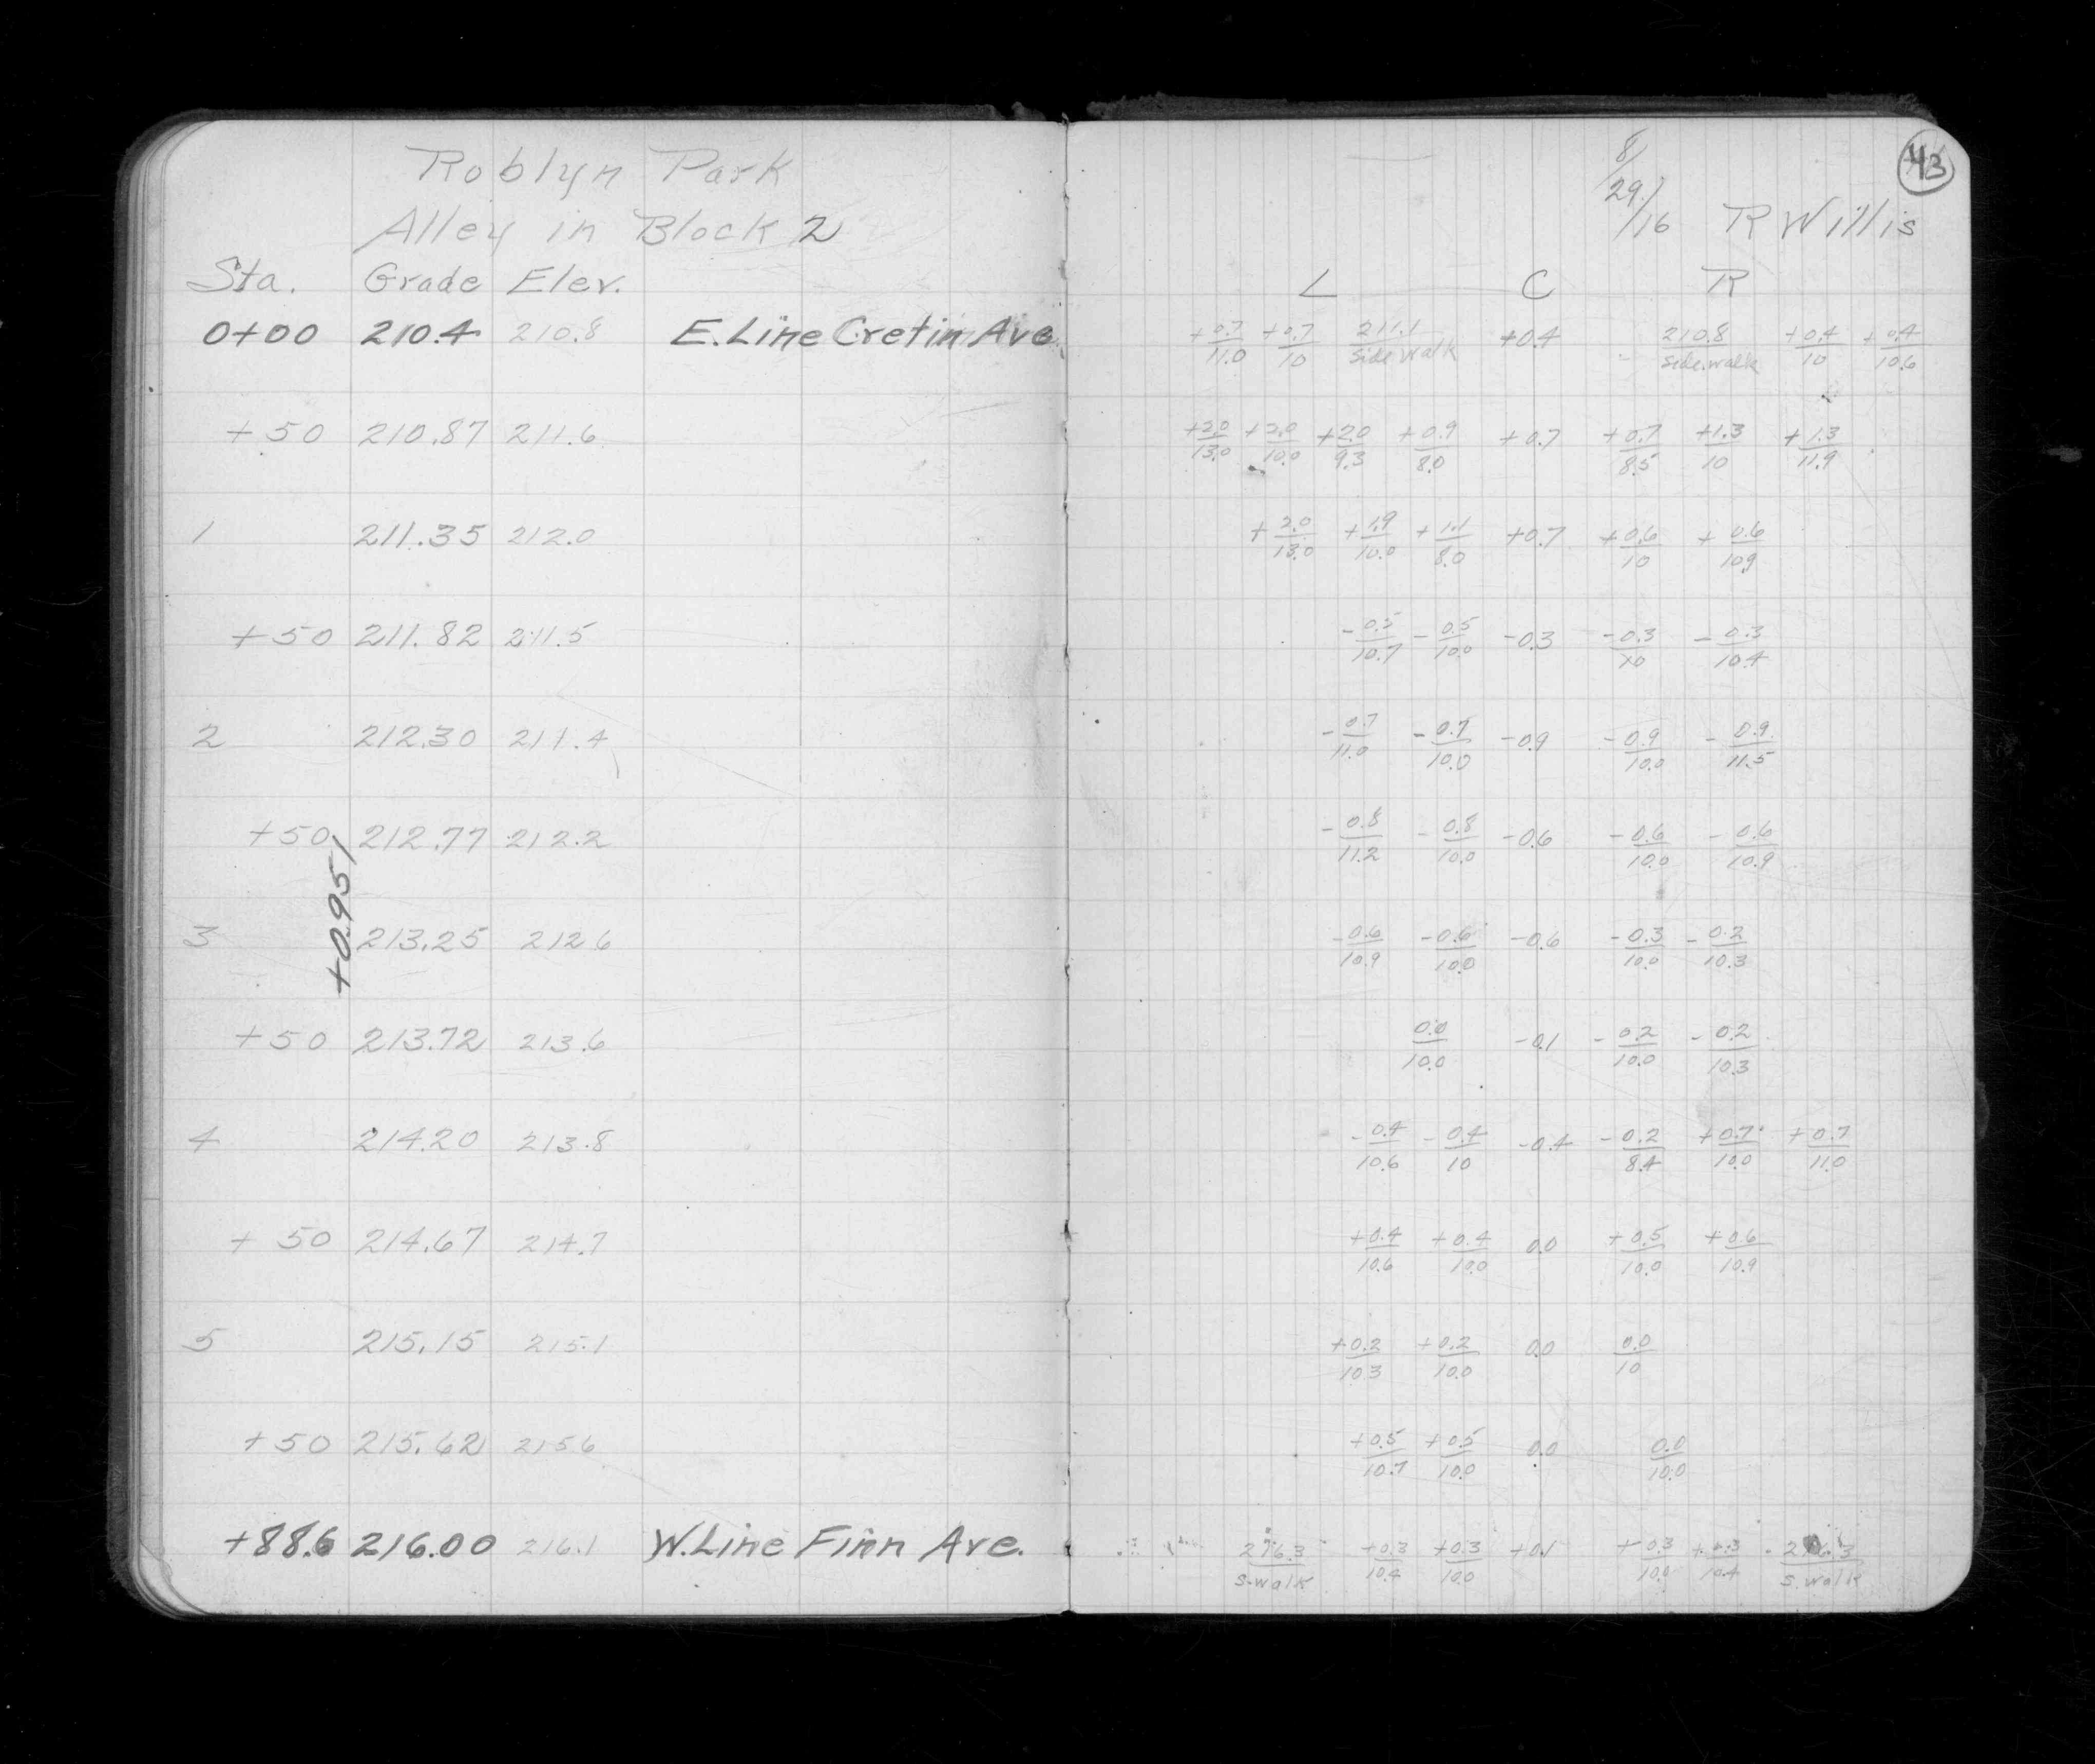 Roblyn Park
Alley in Block 2
Sta. Grade Elev.
0+00 210.4 210.8 E. Line Cretin Ave.
+50 210.87 211.6
1 211.35 212.0
+50 211.82 211.5
2 212.30 211.4
+50 212.77 212.2
+0.951
3 213.25 212.6
+50 213.72 213.6
4 214.20 213.8
+50 214.67 214.7
5 215.15 215.1
+50 215.62 215.6
+88.6 216.00 216.1 W. Line Finn Ave.
43
8/29/16 R Willis
L C R
+0.7/11.0 +0.7/10 211.1/Side Walk +0.4 210.8/Side walk +0.4/10 +0.4/10.6
+2.0/13.0 +2.0/10.0 +2.0/9.3 +0.9/8.0 +0.7 +0.7/8.5 +1.3/10 +1.3/11.9
+2.0/13.0 +1.9/10.0 +1.1/8.0 +0.7 +0.6/10 +0.6/10.9
-0.5/10.7 -0.5/10.0 -0.3 -0.3/10 -0.3/10.4
-0.7/11.0 -0.7/10.0 -0.9 -0.9/10.0 -0.9/11.5
-0.8/11.2 -0.8/10.0 -0.6 -0.6/10.0 -0.6/10.9
-0.6/10.9 -0.6/10.0 -0.6 -0.3/10.0 -0.2/10.3
0.0/10.0 -0.1 -0.2/10.0 -0.2/10.3
-0.4/10.6 -0.4/10 -0.4 -0.2/8.4 +0.7/10.0 +0.7/11.0
+0.4/10.6 +0.4/10.0 0.0 +0.5/10.0 +0.6/10.9
+0.2/10.3 +0.2/10.0 0.0 0.0/10
+0.5/10.7 +0.5/10.0 0.0 0.0/10.0
216.3/S.walk +0.3/10.4 +0.3/10.0 +0.1 +0.3/10.0 +0.3/10.4 216.3/S.walk